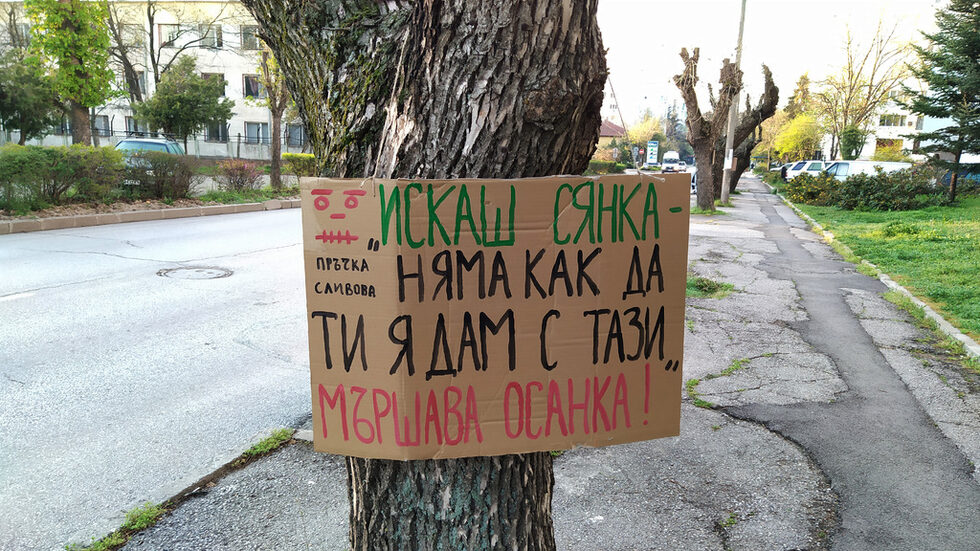 „ИСКАШ СЯНКА-
ПРЪЧКА
СЛИВОВА
НЯМА КАК ДА
ТИ Я ДАМ С ТАЗИ„
МЪРШАВА ОСАНКА!